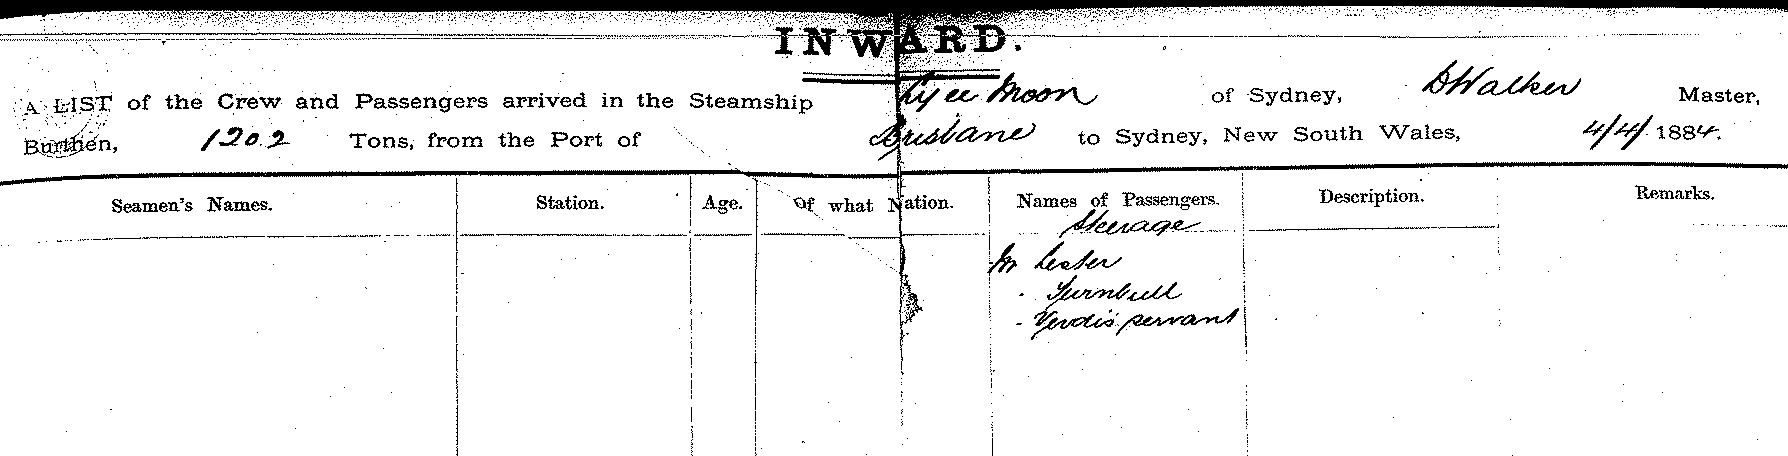 INWARD.
A LIST of the Crew and Passengers arrived in the Steamship Lyee Moon of Sydney, D Walker Master,
Burthen, 1202 Tons, from the Port of Brisbane to Sydney, New South Wales, 4/4/ 1884.
Seamen's Names. Station. Age. Of what Nation. Names of Passengers. Description. Remarks.
Steerage
Mr Lester
- Turnbull
- Verdi's servant